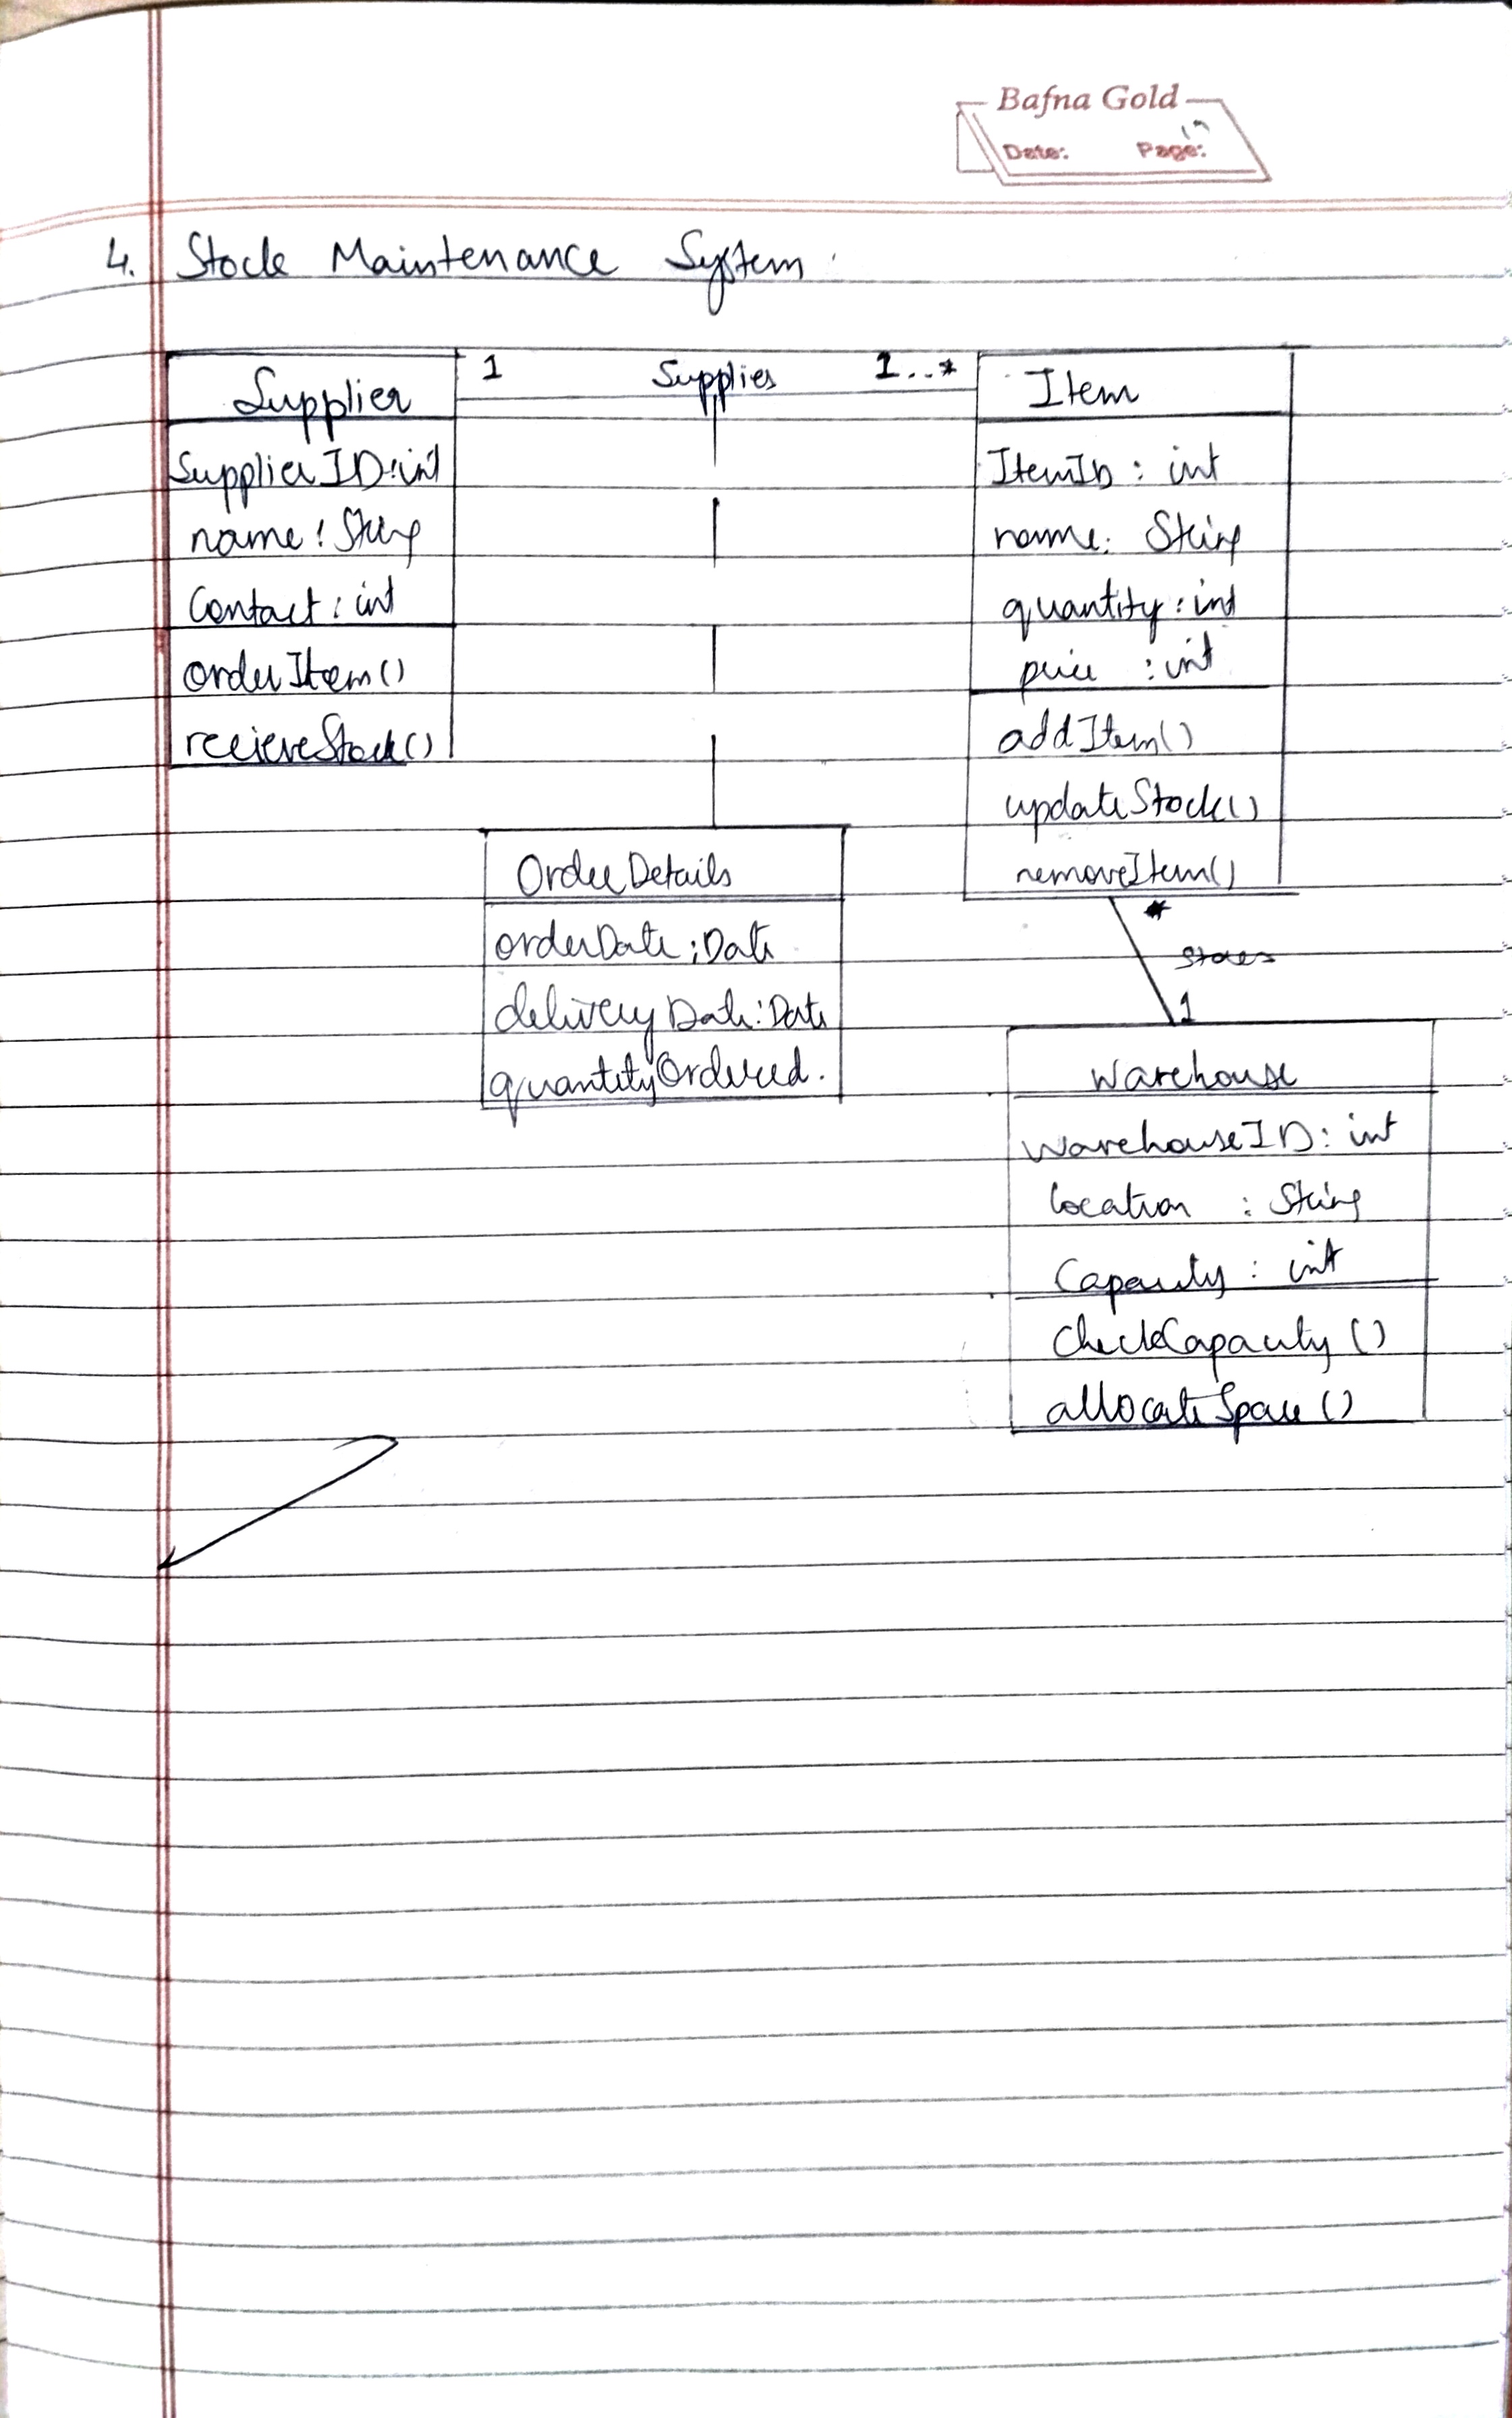 Bafna Gold
Date: Page: 19
4. Stock Maintenance System.
1 Supplies 1..*
Supplier
SupplierID:int
name: String
Contact: int
orderItem()
recieveStock()
Item
ItemID: int
name: String
quantity: int
price : int
addItem()
updateStock()
removeItem()
OrderDetails
orderDate: Date
deliveryDate: Date
quantityOrdered.
*
stores
1
Warehouse
WarehouseID: int
location : String
Capacity: int
CheckCapacity()
allocateSpace()